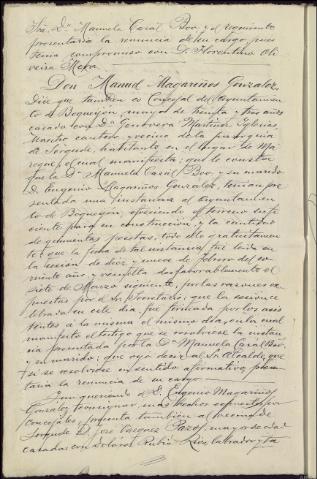 Sra. Dª Manuela Casal Boo y el
presentaría la renuncia de su cargo, pues
tenía compromiso con D. Florentino Oli
veira Mera.
Don Manuel Magariños Gonzalez,
Dice que tambien es Concejal del Ayuntamien
to de Boqueijón, mayor de treinta y tres años
casado con Dª Genoveva Martinez Iglesias
vecino de la parroquia
de habitante en el lugar de Ma
el cual manifiesta, que le consta
que la Dª Manuela Casal Boo y su marido
D. Eugenio Magariños Gonzalez, tenían pre
sentada una instancia al Ayuntamien
to de Boqueijon, ofreciendo el terreno sufi
ciente para su construcción, y la cantidad
de quinientas pesetas, todo ello gratuitamen
te que la fecha de tal instancia fué leida en
la sesión de diez y nueve de Febrero del co
rriente año y resuelta desfavorablemente el
siete de Marzo siguiente, por las razones ex
puestas por el Sr. Secretario; que la sesión ce
lebrada en este día fué firmada por los asis
tentes a la misma el mismo día, en la cual
manifestó el testigo que se resolviese la instan
cia presentada por la Dª Manuela Casal Boo,
y su marido; que oyó decir al Sr. Alcalde, que
si se resolviese en sentido afirmativo, presen
taría la renuncia de su cargo.
Y queriendo el D. Eugenio Magariños
Gonzalez consignar, los hechos
Concejales, presenta tambien al vecino de
D. José Vazquez Pazos, mayor de edad
casado con Dolores Rubio labrador y ta